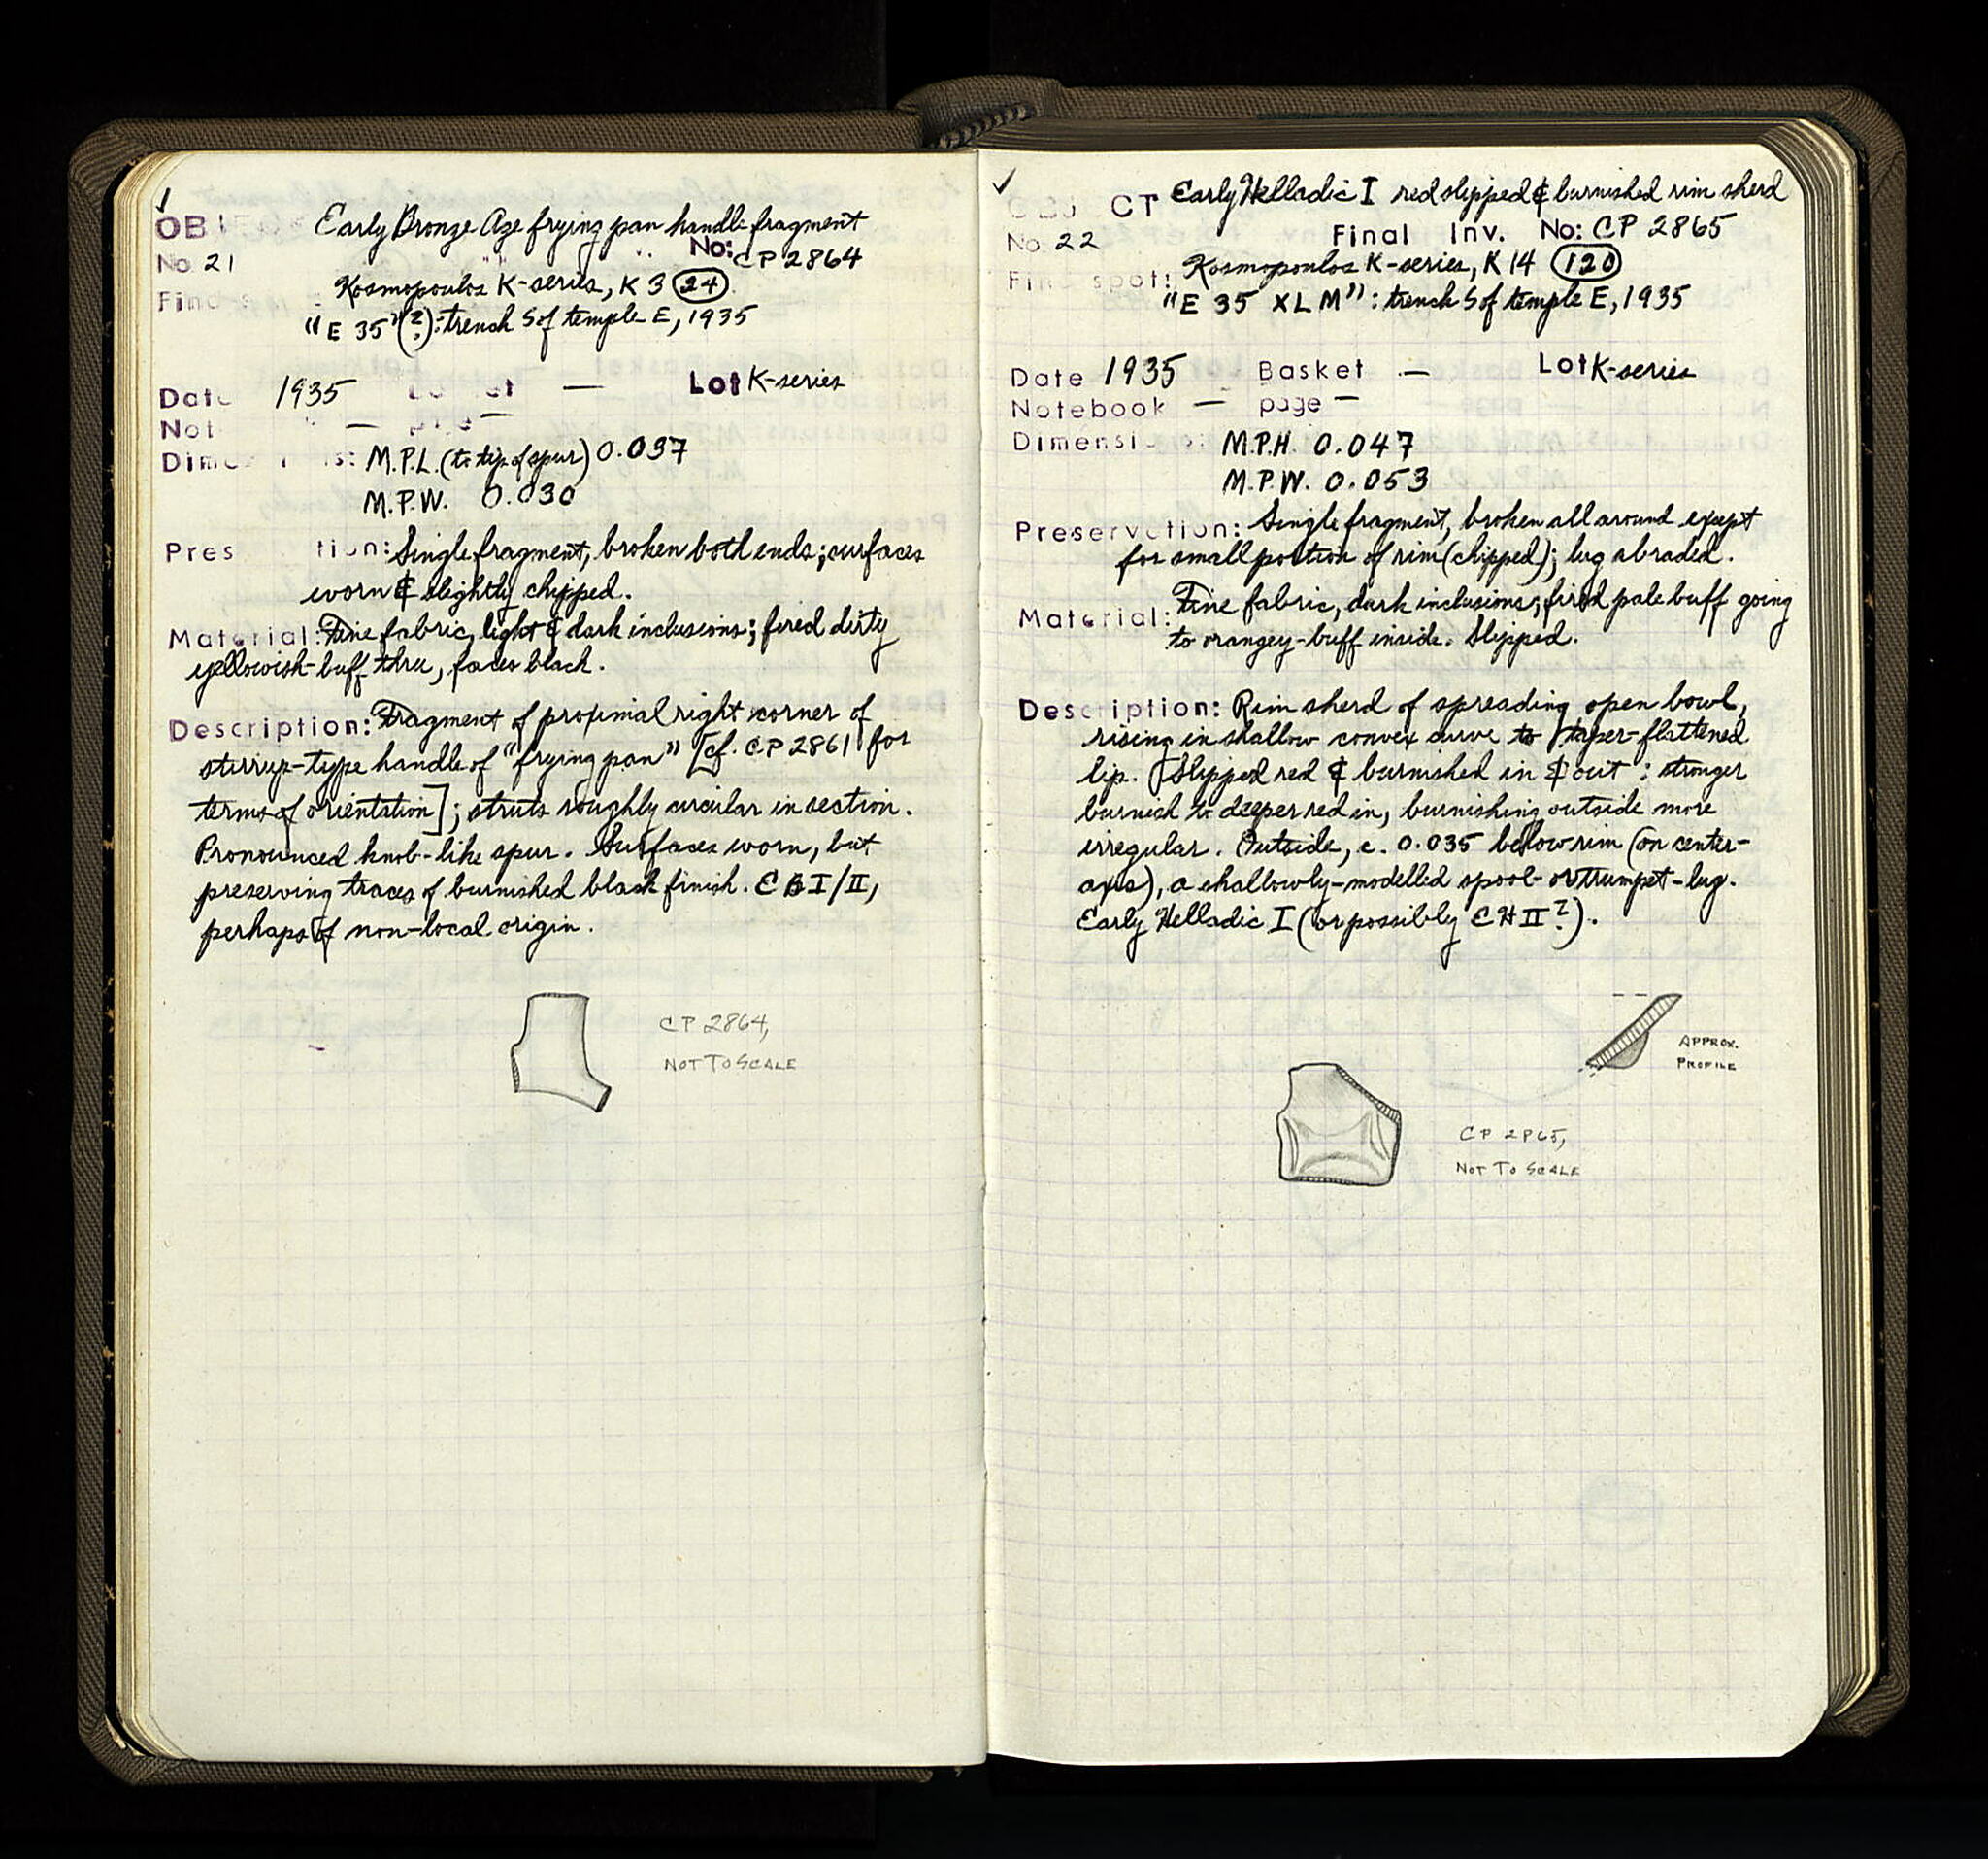 ✓
OBJE Early Bronze Age frying pan handle fragment
No. 21 No: CP 2864
Find s : Kosmopoulos K-series, K 3 (24)
"E 35"(?): trench S of temple E, 1935
Date 1935 et — Lot K-series
Not — p e —
Dime s: M.P.L. (to tip of spur) 0.037
M.P.W. 0.030
Pres tion: Single fragment, broken both ends; surfaces
worn & slightly chipped.
Material: Fine fabric, light & dark inclusions; fired dirty
yellowish-buff thru, faces black.
Description: Fragment of proximal right corner of
stirrup-type handle of "frying pan" [cf. CP 2861 for
terms of orientation]; struts roughly circular in section.
Pronounced knob-like spur. Surfaces worn, but
preserving traces of burnished black finish. EB I/II,
perhaps of non-local origin.
CP 2864,
NOT TO SCALE
✓
OBJ CT Early Helladic I red slipped & burnished rim sherd
No. 22 Final Inv. No: CP 2865
Find spot: Kosmopoulos K-series, K 14 (120)
"E 35 XLM": trench S of temple E, 1935
Date 1935 Basket — Lot K-series
Notebook — page —
Dimensi s: M.P.H. 0.047
M.P.W. 0.053
Preservation: Single fragment, broken all around except
for small portion of rim (chipped); lug abraded.
Material: Fine fabric, dark inclusions; fired pale buff going
to orangey-buff inside. Slipped.
Description: Rim sherd of spreading open bowl,
rising in shallow convex curve to taper-flattened
lip. Slipped red & burnished in & out: stronger
burnish to deeper red in, burnishing outside more
irregular. Outside, c. 0.035 below rim (on center-
axis), a shallowly-modelled spool- or trumpet-lug.
Early Helladic I (or possibly EH II?).
APPROX.
PROFILE
CP 2865,
NOT TO SCALE